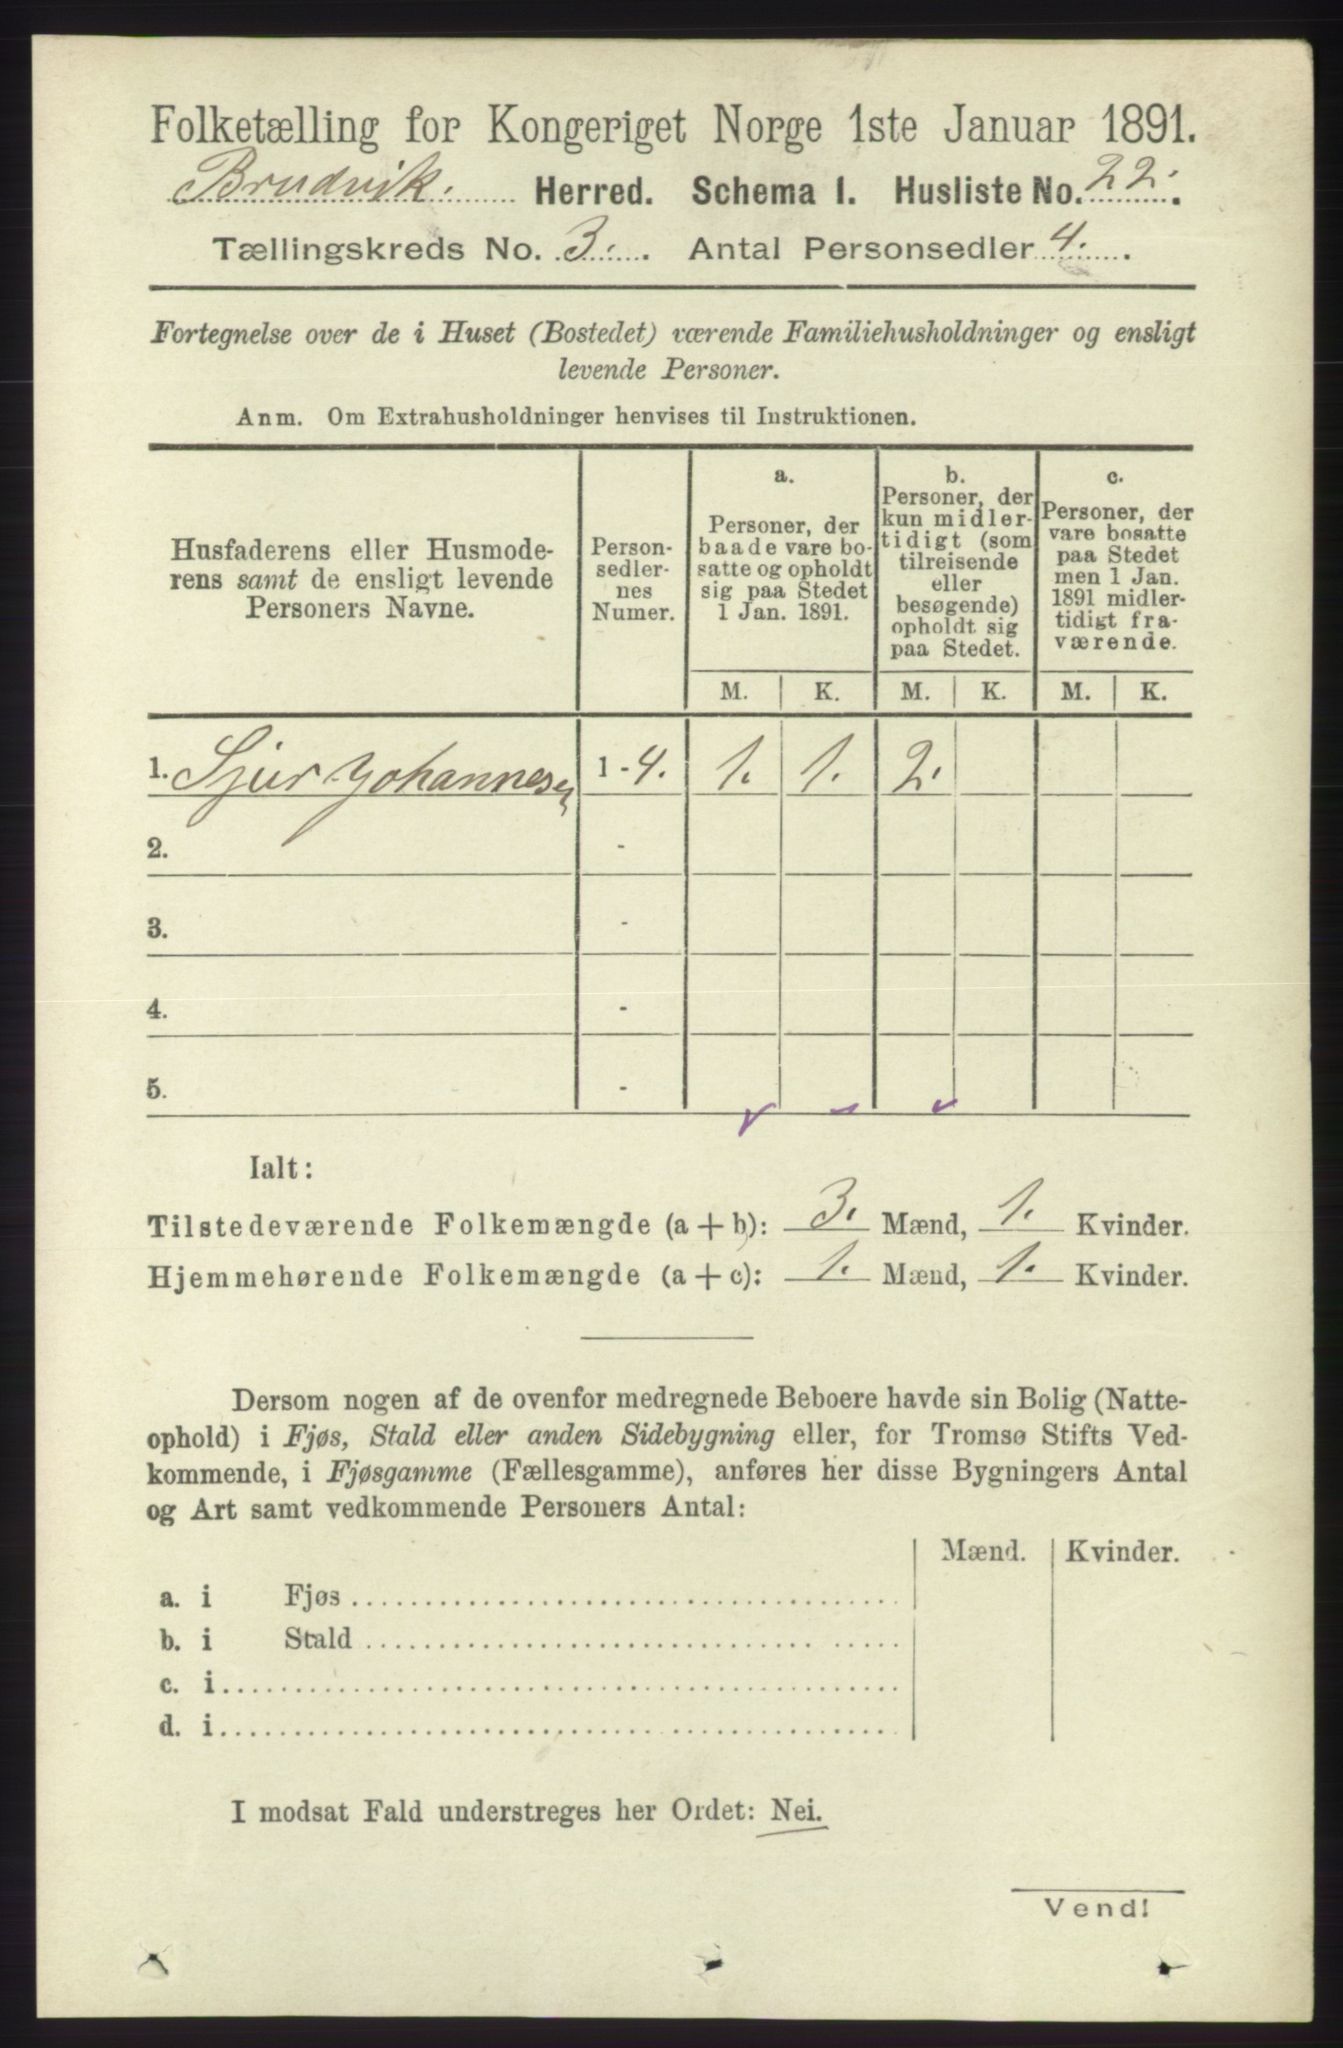 Folketælling for Kongeriget Norge 1ste Januar 1891.
Brudvik. Herred. Schema 1. Husliste No. 22.
Tællingskreds No. 3. Antal Personsedler 4.
Fortegnelse over de i Huset (Bostedet) værende Familiehusholdninger og ensligt
levende Personer.
Anm. Om Extrahusholdninger henvises til Instruktionen.
Husfaderens eller Husmode-
rens samt de ensligt levende
Personers Navne.
Person-
sedler-
nes
Numer.
a.
Personer, der
baade vare bo-
satte og opholdt
sig paa Stedet
1 Jan. 1891.
b.
Personer, der
kun midler-
tidigt (som
tilreisende
eller
besøgende)
opholdt sig
paa Stedet.
c.
Personer, der
vare bosatte
paa Stedet
men 1 Jan.
1891 midler-
tidigt fra-
værende.
M. K. M. K. M. K.
1. Sjur Johannesen 1-4. 1. 1. 2.
2. -
3. -
4. -
5. -
Ialt:
Tilstedeværende Folkemængde (a+b): 3. Mænd, 1. Kvinder.
Hjemmehørende Folkemængde (a+c): 1. Mænd, 1. Kvinder.
Dersom nogen af de ovenfor medregnede Beboere havde sin Bolig (Natte-
ophold) i Fjøs, Stald eller anden Sidebygning eller, for Tromsø Stifts Ved-
kommende, i Fjøsgamme (Fællesgamme), anføres her disse Bygningers Antal
og Art samt vedkommende Personers Antal:
Mænd. Kvinder.
a. i Fjøs
b. i Stald
c. i
d. i
I modsat Fald understreges her Ordet: Nei.
Vend!